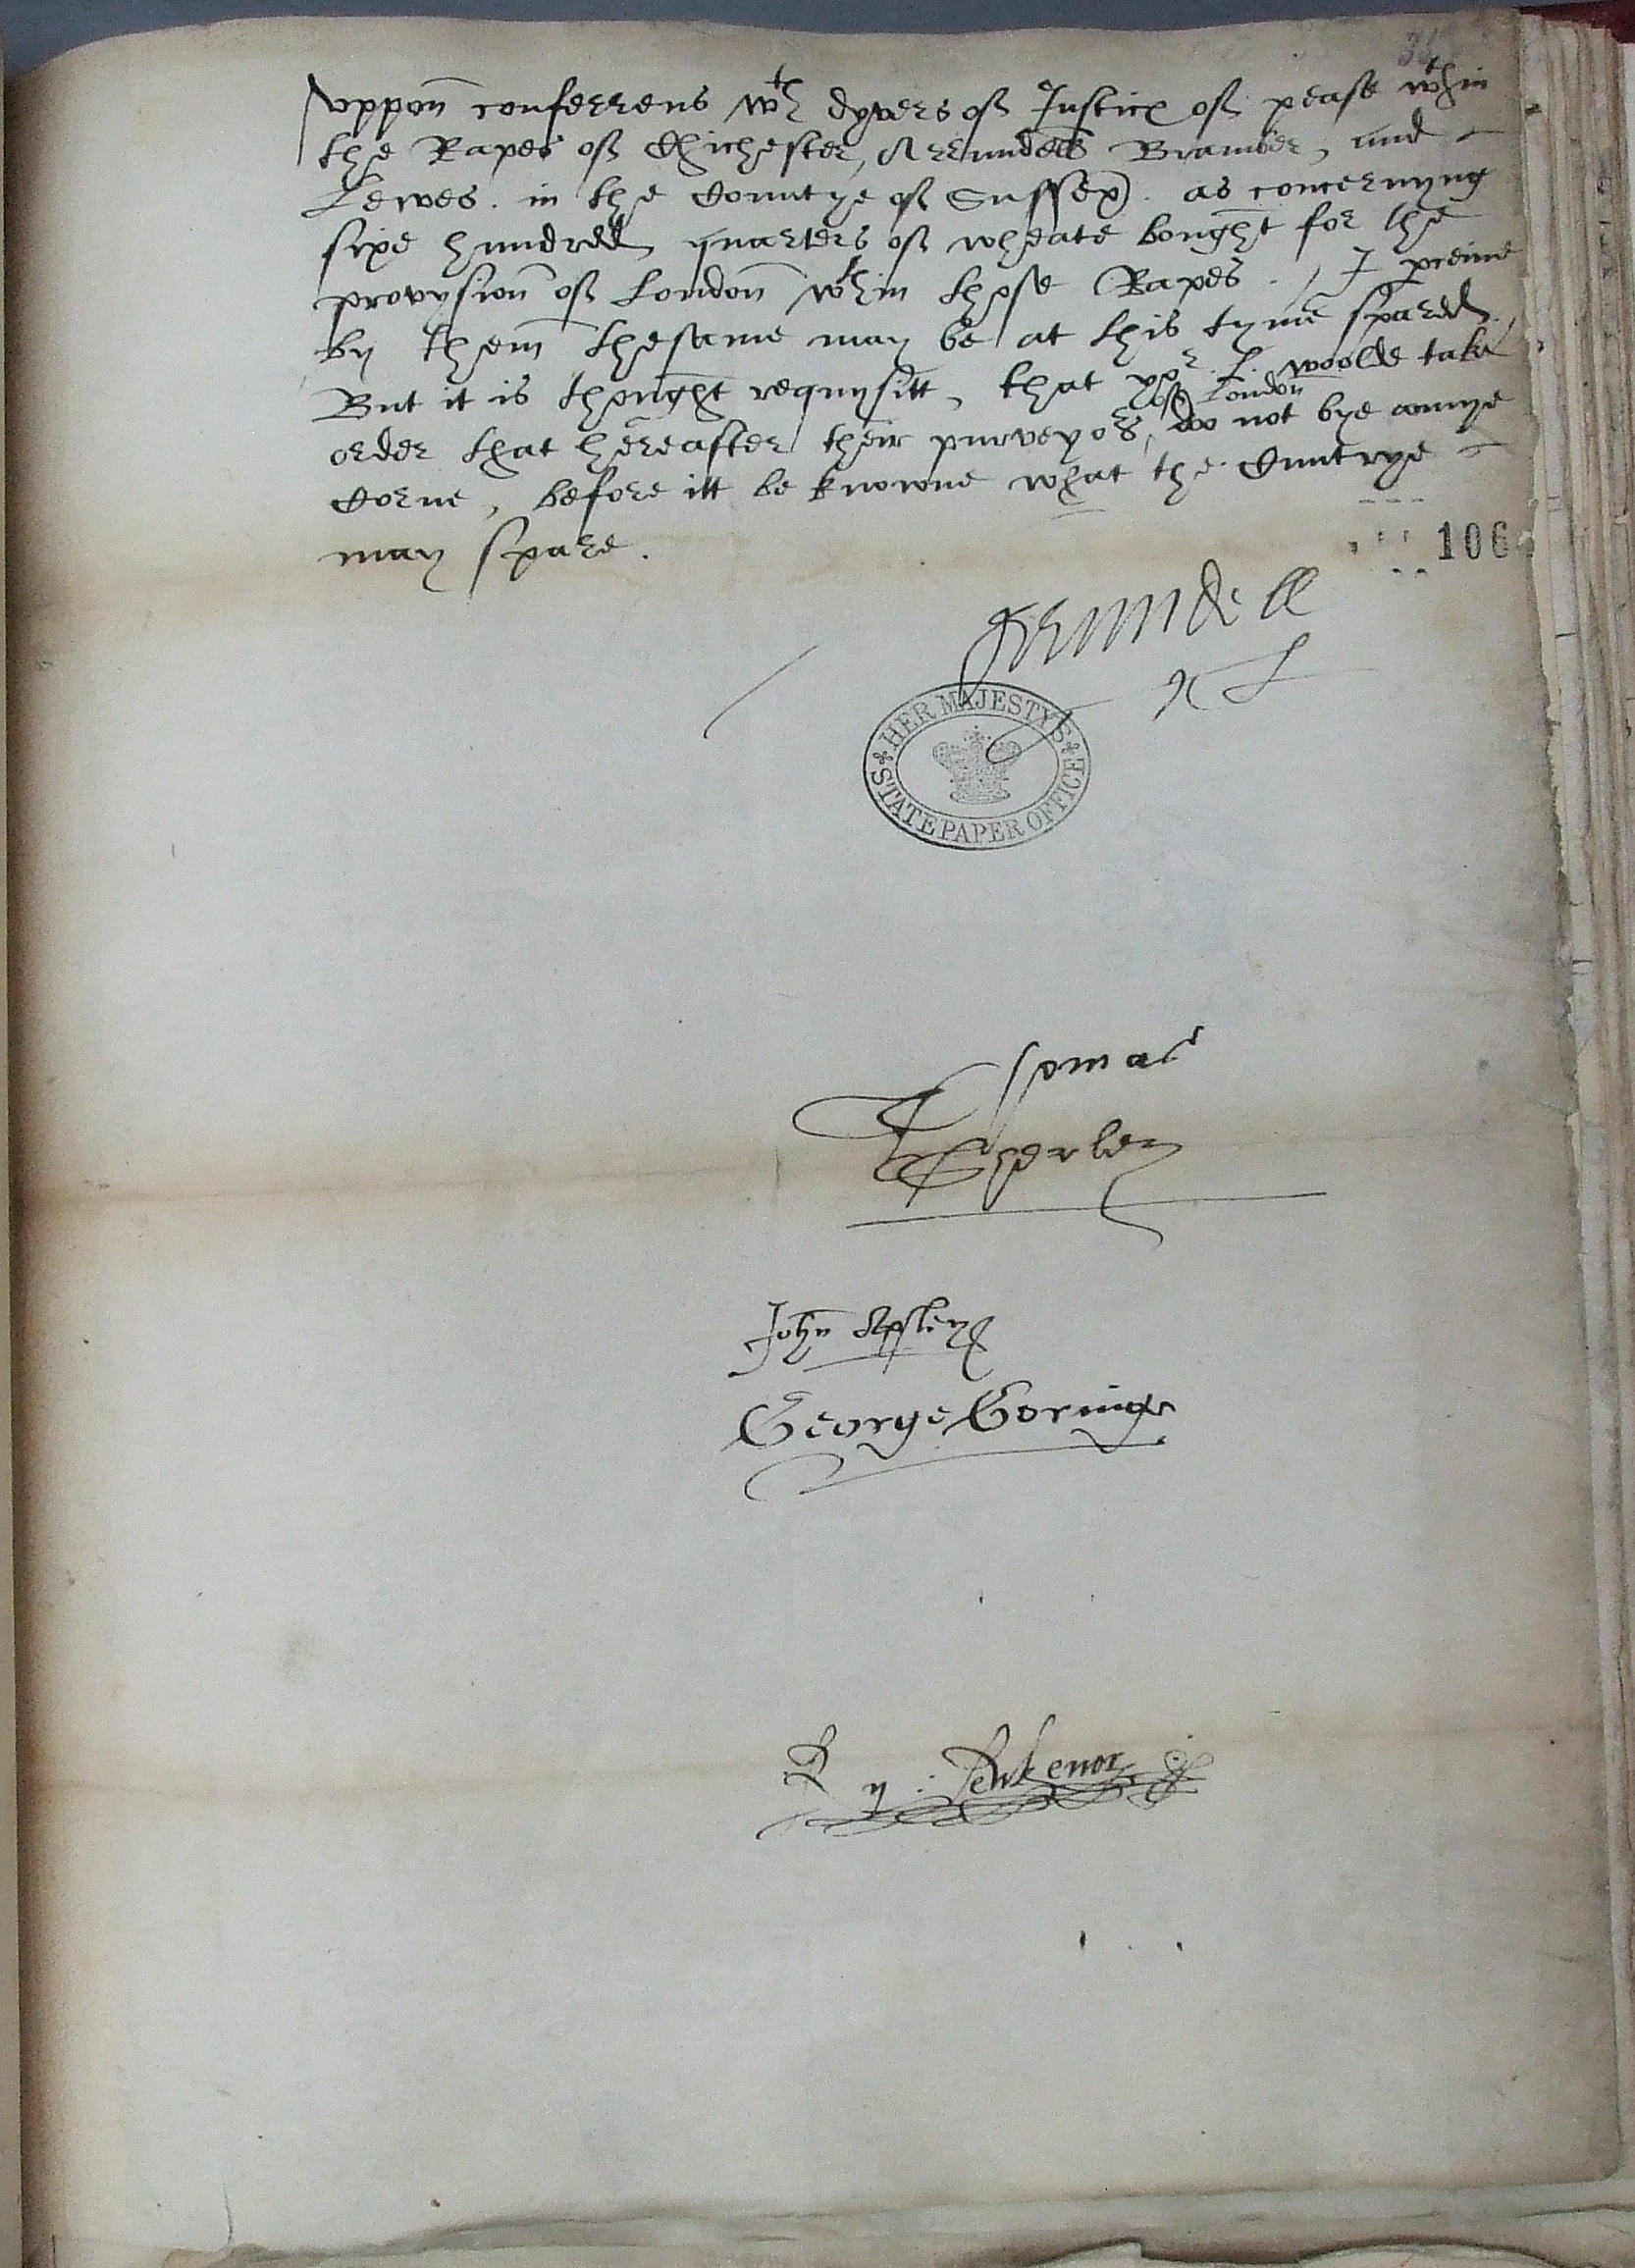 36
Vppon conferrens wth dyvers of Justice of pease wthin
the Rapes of Chichester, Arrundell Bramber, and
Lewes. in the Countye of Sussex. as concernyng
sixe hundredd quarters of wheate bought for the
provysion of London wthin those Rapes. / I preive
by them thesame may be at this tyme sparedd.
But it is thought requysitt, that yor. L. woolde take
of London
order that hereafter their purveyors, do not bye annye
Corne, before itt be knowne what the Cuntrye
may spare.
106
Arundell
HER MAJESTY'S
STATE PAPER OFFICE
Thomas
Sherley
John Apsley
George Goringe
Ry: Lewkenor